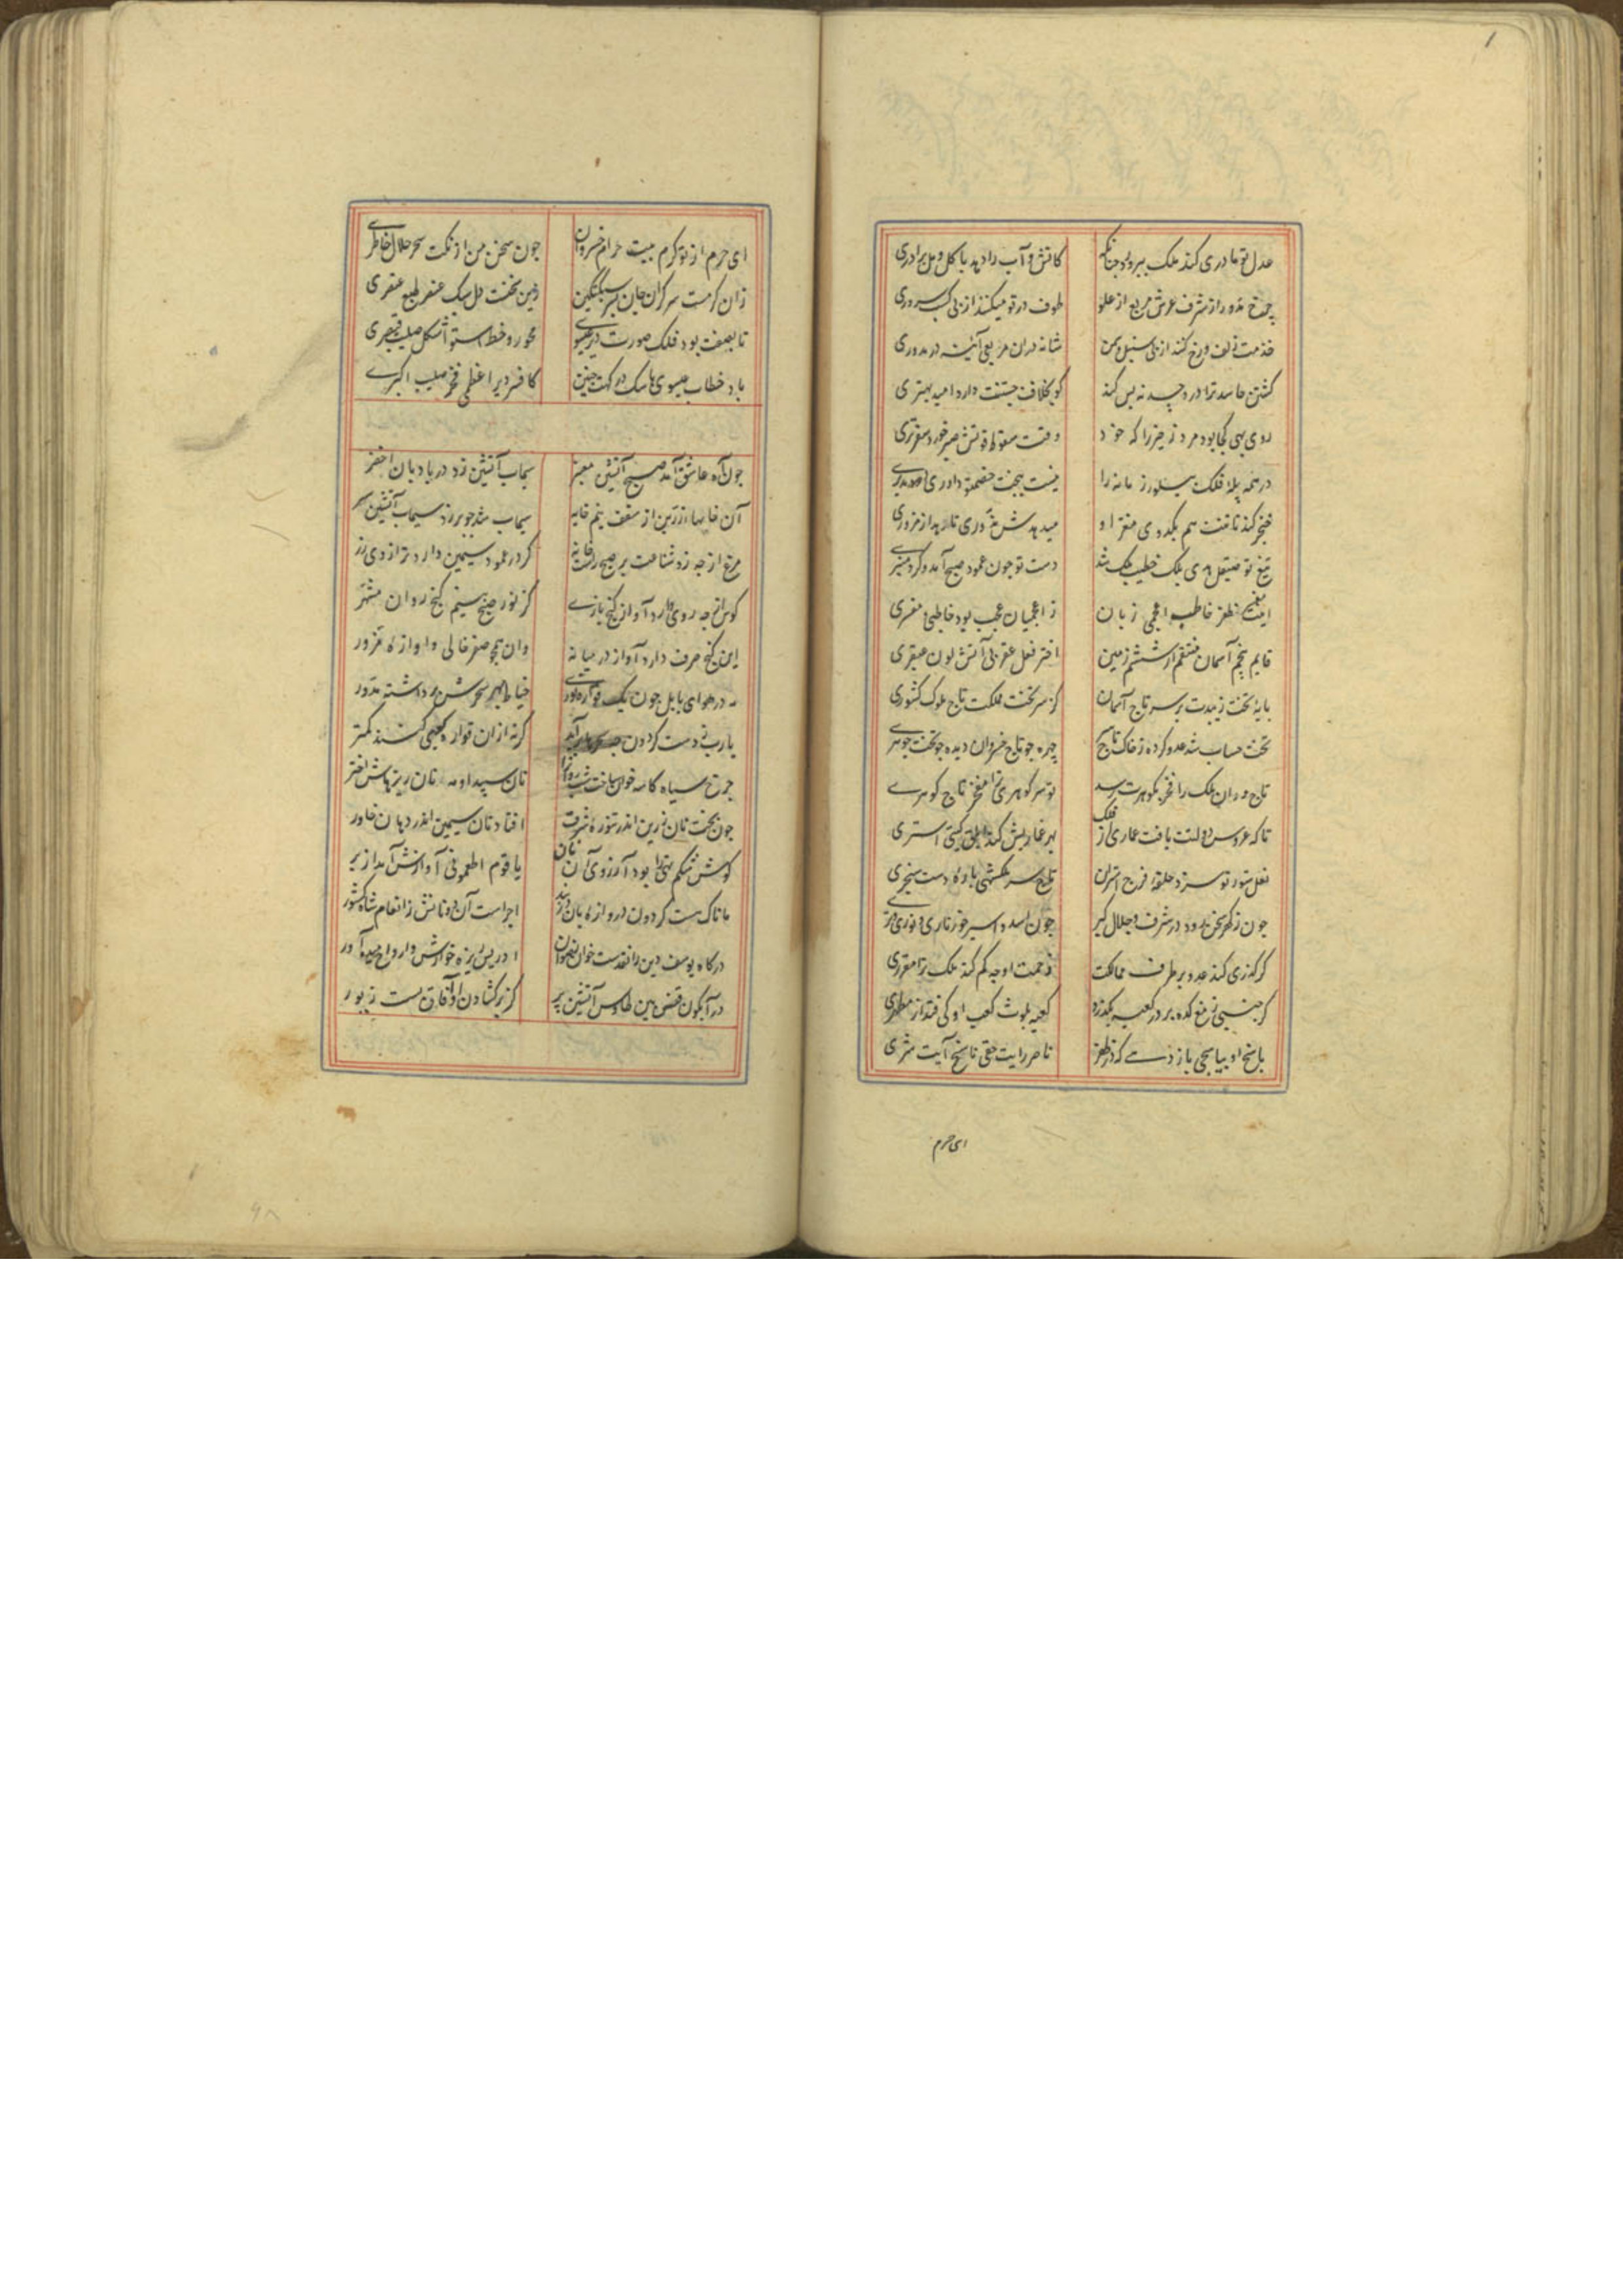 عدل تو مادری کند ملک بپرورد چنانکه کاتش و آب را دهد با گل و مل برادری
چرخ مدور از شرف عرش مربع از علو طوف در تو میکنند از پی کسب سروری
خدمت زلف و رخ کند از پی سنبل و سمن شانه در آن مربعی آینه در مدوری
کشتن حاسد ترا درد حسد نه بس کند کو بخلاف جستنت دارد امید بهتری
روی بهی کجا بود مرد زحیر را که خود وقت سقوط قوتش صبر خورد سقوطری
در همه پلهٔ فلک سیلورز مانه را نیست بجخت خصم تو داوری
خنجر کند نا تفت هم بگدوی مغز او میدهدش مزوری
تیغ تو صیقل هدی ملک خطیب ملک شد دست تو چون عمود صبح آمد و کرد منبری
اینت ظفر خاطب اعجمی زبان ز اعجمیان عجب بود خاطبی و سفری
قایم پنجم آسمان منتقم از ششم زمین اختر فعل عقربی آتش لون عبقری
پایهٔ تخت زیبدت بر سر تاج آسمان کز سر تخت مملکت تاج ملوک کشوری
تخت حساب شد عدو کرده ز خاک تاج چهره چو تاج خسروان دیده چو تخت جوهری
تاجوران ملک را فخر ز گوهرت رسد تو سر گوهری ترا مفخر تاج گوهری
تا که عروس دولتت یافت عماری از فلک بهر عماریش کند ابلق گیتی استری
نعل ستور تو سزد حلقهٔ فرج استران تاج سر ملکشهی یارهٔ دست سنجری
چون ز گهر سخن رود در شرف و جلال گیر چون اسد و اسیر خور ناری و نوری و نری
گر گذری کند عدو بر طرف ممالکت زحمت او چه کم کند ملک ترا مقرری
گر جنبی ز مغکده بر در کعبه بگذرد کعبه بلوث کعب او کی فتد از مطهری
پاسخ او بیاسجی باز دهی که در ظفر ناصر رایت حقی ناسخ آیت شری
ای حرم
ای حرم از تو کرم بیت حرام خسروان چون سخن من از نکت سحر حلال خاطری
زان کرمت سر گران جان پسر سبکتگین زین سخنت دل سبک عنصر طبع عنصری
تا بصفت بود فلک صورت دیر عیسوی محور و خط استوا شکل صلیب قیصری
باد خطاب عیسوی با سک درگهت چنین کافسر دیر اعظمی فخر صلیب اکبری
چون آه عاشق آمد صبح آتشین معنبر سیماب آتشین زد در بادبان اخضر
آن خایهای زرین از سقف نیم خایه سیماب شد چو بر زد سیماب آتشین سر
مرغ از چه زد شناعت بر صبح راست خانه گر در عمود سیمین دارد ترازوی زر
کوس از چه روی دارد آواز گنج بازی کز نور صبح بینم گنج روان مشهر
این گنج صرف دارد آواز در میانه وان همچو صفر خالی و آوازهٔ مزور
نه در هوای بابل چون یک قواره خیاط بهر سحرش برداشته مدور
یا رب ز دست گردون چه برآید گر نه از آن قواره نیمی کنند کمتر
چرخ سیاه کاسه خوان ساخت شبروانرا نان سپید او مه نان ریزهاش اختر
چون پخت نان زرین اندر تنور مشرق افتاد نان سیمین اندر دهان خاور
گوش شکم تهی را بود آرزوی آن نان یا قوم اطعمونی آوازش آمد از بر
مانا که هست گردون دروازه‌بان دربند اجراست آن دو نانش ز انعام شاه کشور
درگاه یوسف دین رافقدست خوان اخوان ادریس ریزه خوارش و ارواح میده آور
در آبگون قفس بین طاوس آتشین پر کز پر گشادن او آفاق بست زیور